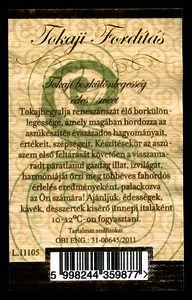 Tokaji Fordítás
Tokaji borkülönlegesség
édes / sweet
Tokajhegyalja reneszánszát élő borkülön-
legessége, amely magában hordozza az
aszúkészítés évszázados hagyományait,
értékeit, szépségeit. Készítésekor az aszú-
szem első feltárását követően a visszama-
radt páratlanul gazdag illat, ízvilágát,
harmóniáját őrzi meg többéves fahordós
érlelés eredményeként, palackozva
az Ön számára! Ajánljuk: édességek,
kávék, desszertek kísérő ünnepi italaként
10-12°C-on fogyasztani.
Tartalmaz szulfitokat.
OBI ENG.: 31-00645/2011
L.11105
5 998244 359877 >